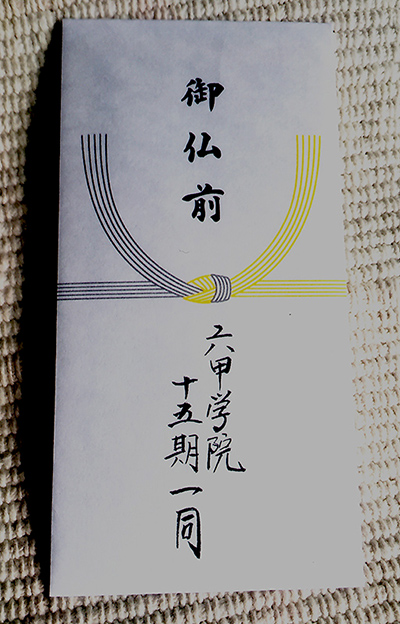 御仏前
六甲学院
十五期一同